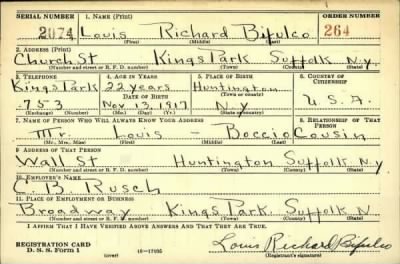 SERIAL NUMBER 1. NAME (Print) ORDER NUMBER
2074 Louis Richard Bifulco 264
(First) (Middle) (Last)
2. ADDRESS (Print)
Church St Kings Park Suffolk N.Y.
(Number and street or R. F. D. number) (Town) (County) (State)
3. TELEPHONE 4. AGE IN YEARS 5. PLACE OF BIRTH 6. COUNTRY OF CITIZENSHIP
Kings Park 22 years Huntington
DATE OF BIRTH (Town or county)
753 Nov 13, 1917 N.Y U.S.A.
(Exchange) (Number) (Mo.) (Day) (Yr.) (State or country)
7. NAME OF PERSON WHO WILL ALWAYS KNOW YOUR ADDRESS 8. RELATIONSHIP OF THAT PERSON
Mr. Louis - Boccio Cousin
(Mr., Mrs., Miss) (First) (Middle) (Last)
9. ADDRESS OF THAT PERSON
Wall St Huntington Suffolk N.y
(Number and street or R. F. D. number) (Town) (County) (State)
10. EMPLOYER'S NAME
C. B. Rusch
11. PLACE OF EMPLOYMENT OR BUSINESS
Broadway Kings Park. Suffolk N
(Number and street or R. F. D. number) (Town) (County) (State)
I AFFIRM THAT I HAVE VERIFIED ABOVE ANSWERS AND THAT THEY ARE TRUE.
REGISTRATION CARD
D. S. S. FORM 1 (over) Louis Richard Bifulco
(Registrant's signature)